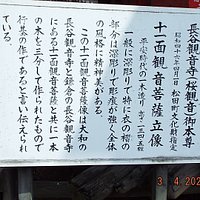 長谷観音寺(桜観音)御本尊
昭和四十六年四月一日 松田町文化財指定
十一面観音菩薩立像
平安時代の一木造り 高さ二三四五糎
一般に深彫りで特に衣の襞の
部分は深彫りで彫痕が強く全体
の風格に精神美がある
この十一面観音菩薩像は大和の
長谷観音寺と鎌倉の長谷観音寺
にある十一面観音像と共に一本
の木を三分して作られたもので
行基の作であると言い伝えられ
ている
3 4 202